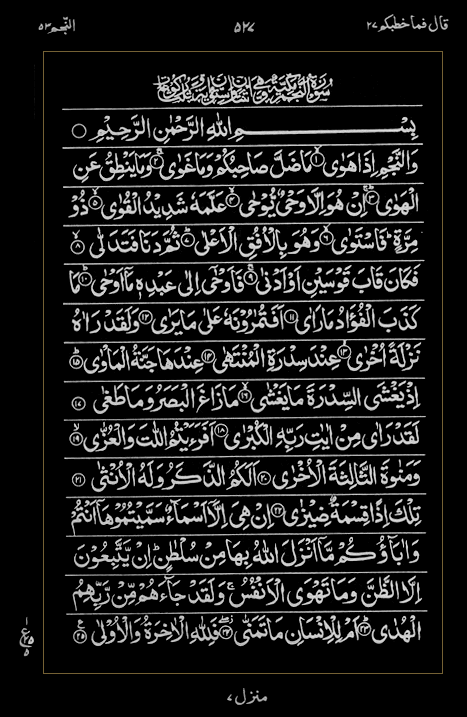 قال فما خطبكم ۲۷ ۵۲۷ النجم ۵۳
بِسْمِ اللّٰهِ الرَّحْمٰنِ الرَّحِیْمِ ○
وَالنَّجْمِ اِذَا هَوٰی ۱ مَا ضَلَّ صَاحِبُكُمْ وَمَا غَوٰی ۲ وَمَا یَنْطِقُ عَنِ
الْهَوٰی ۳ اِنْ هُوَ اِلَّا وَحْیٌ یُّوْحٰی ۴ عَلَّمَهٗ شَدِیْدُ الْقُوٰی ۵ ذُوْ
مِرَّةٍ فَاسْتَوٰی ۶ وَهُوَ بِالْاُفُقِ الْاَعْلٰی ۷ ثُمَّ دَنَا فَتَدَلّٰی ۸
فَكَانَ قَابَ قَوْسَیْنِ اَوْ اَدْنٰی ۹ فَاَوْحٰۤی اِلٰی عَبْدِهٖ مَاۤ اَوْحٰی ۱۰ مَا
كَذَبَ الْفُؤَادُ مَا رَاٰی ۱۱ اَفَتُمٰرُوْنَهٗ عَلٰی مَا یَرٰی ۱۲ وَلَقَدْ رَاٰهُ
نَزْلَةً اُخْرٰی ۱۳ عِنْدَ سِدْرَةِ الْمُنْتَهٰی ۱۴ عِنْدَهَا جَنَّةُ الْمَاْوٰی ۱۵
اِذْ یَغْشَی السِّدْرَةَ مَا یَغْشٰی ۱۶ مَا زَاغَ الْبَصَرُ وَمَا طَغٰی ۱۷
لَقَدْ رَاٰی مِنْ اٰیٰتِ رَبِّهِ الْكُبْرٰی ۱۸ اَفَرَءَیْتُمُ اللّٰتَ وَالْعُزّٰی ۱۹
وَمَنٰوةَ الثَّالِثَةَ الْاُخْرٰی ۲۰ اَلَكُمُ الذَّكَرُ وَلَهُ الْاُنْثٰی ۲۱
تِلْكَ اِذًا قِسْمَةٌ ضِیْزٰی ۲۲ اِنْ هِیَ اِلَّاۤ اَسْمَآءٌ سَمَّیْتُمُوْهَاۤ اَنْتُمْ
وَاٰبَآؤُكُمْ مَّاۤ اَنْزَلَ اللّٰهُ بِهَا مِنْ سُلْطٰنٍ ؕ اِنْ یَّتَّبِعُوْنَ
اِلَّا الظَّنَّ وَمَا تَهْوَی الْاَنْفُسُ ۚ وَلَقَدْ جَآءَهُمْ مِّنْ رَّبِّهِمُ
الْهُدٰی ۲۳ اَمْ لِلْاِنْسَانِ مَا تَمَنّٰی ۲۴ فَلِلّٰهِ الْاٰخِرَةُ وَالْاُوْلٰی ۲۵
۱
ع ۲۵
۵
منزل ۷